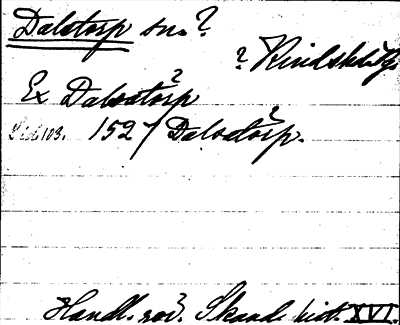 Dalstorp sn.?
? Kindsklbg
Ex Dalsatorp ?
Sid 103. 1527 Dalsatorp. ?
Handl. rör. Skand. hist. XVI.